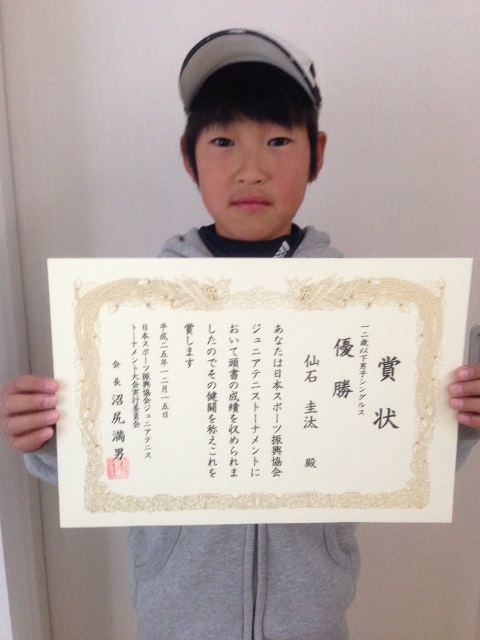 賞状
一二歳以下男子シングルス
優勝
仙石 圭汰 殿
あなたは日本スポーツ振興協会
ジュニアテニストーナメントに
おいて頭書の成績を収められま
したのでその健闘を称えこれを
賞します
平成二五年一二月一五日
日本スポーツ振興協会ジュニアテニス
トーナメント大会実行委員会
会長 沼尻満男